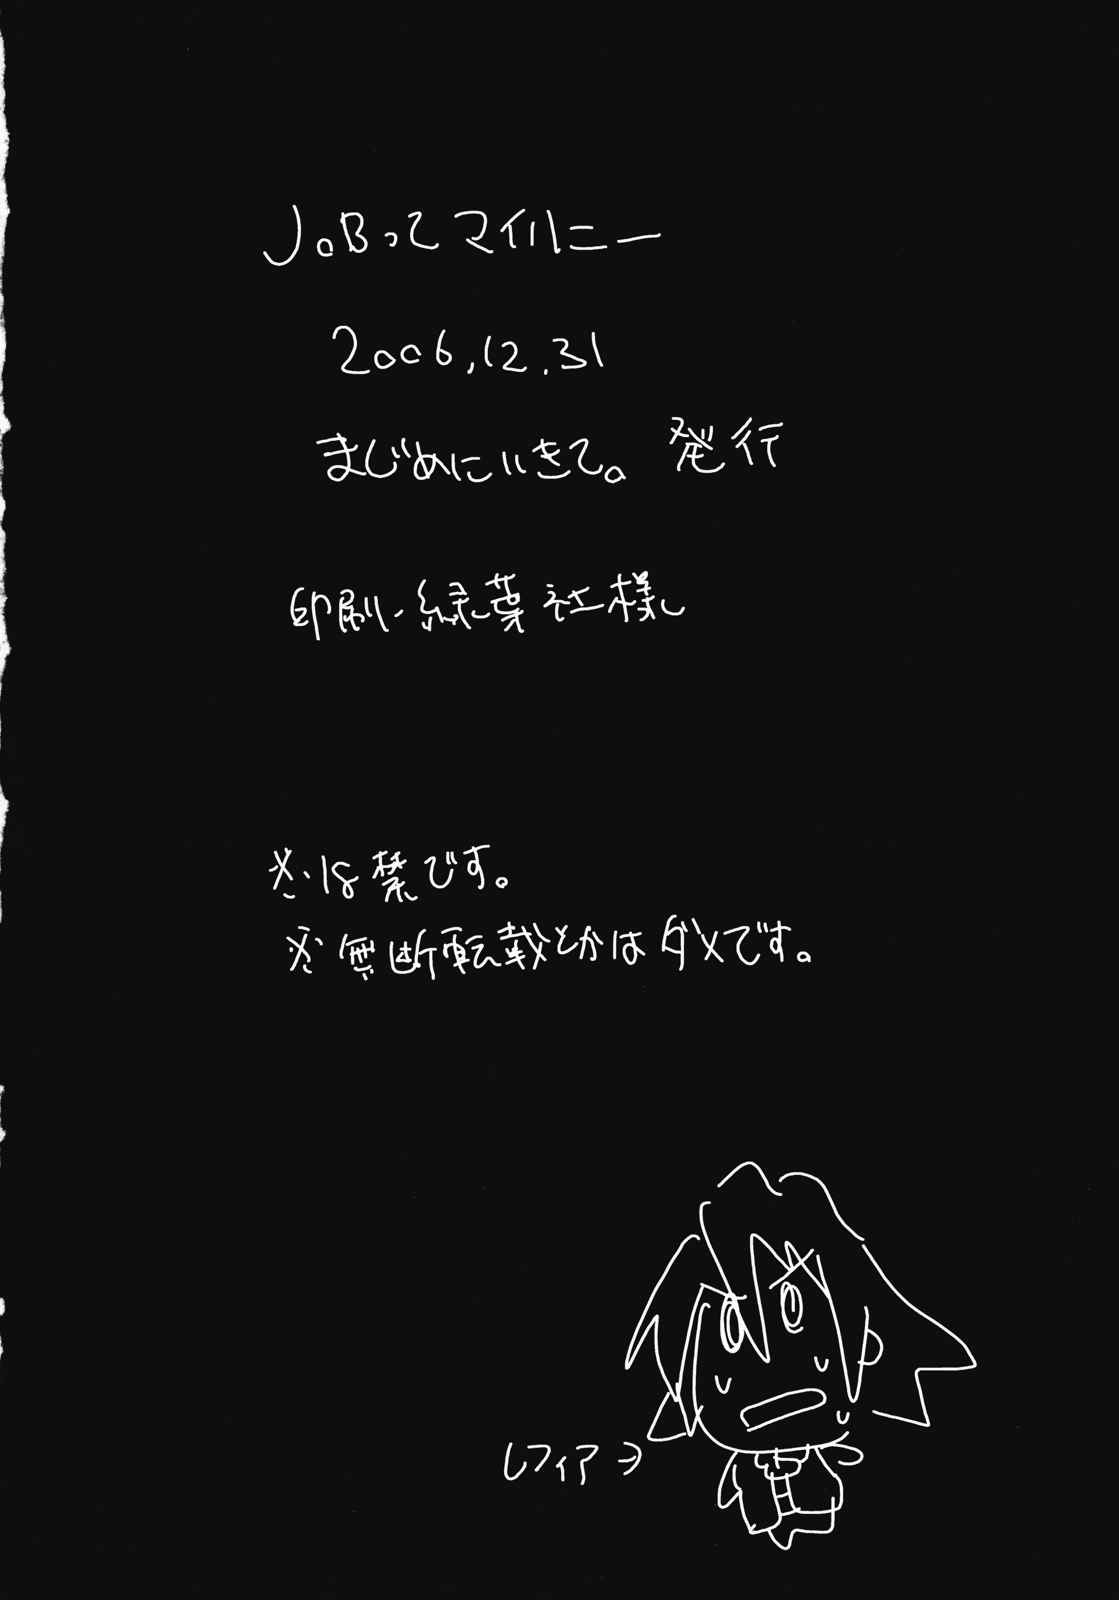 JoBってマイハニー
2006.12.31
まじめにいきて。発行
印刷・緑葉社様
は禁です。
※無断転載とかはダメです。
レフィア→